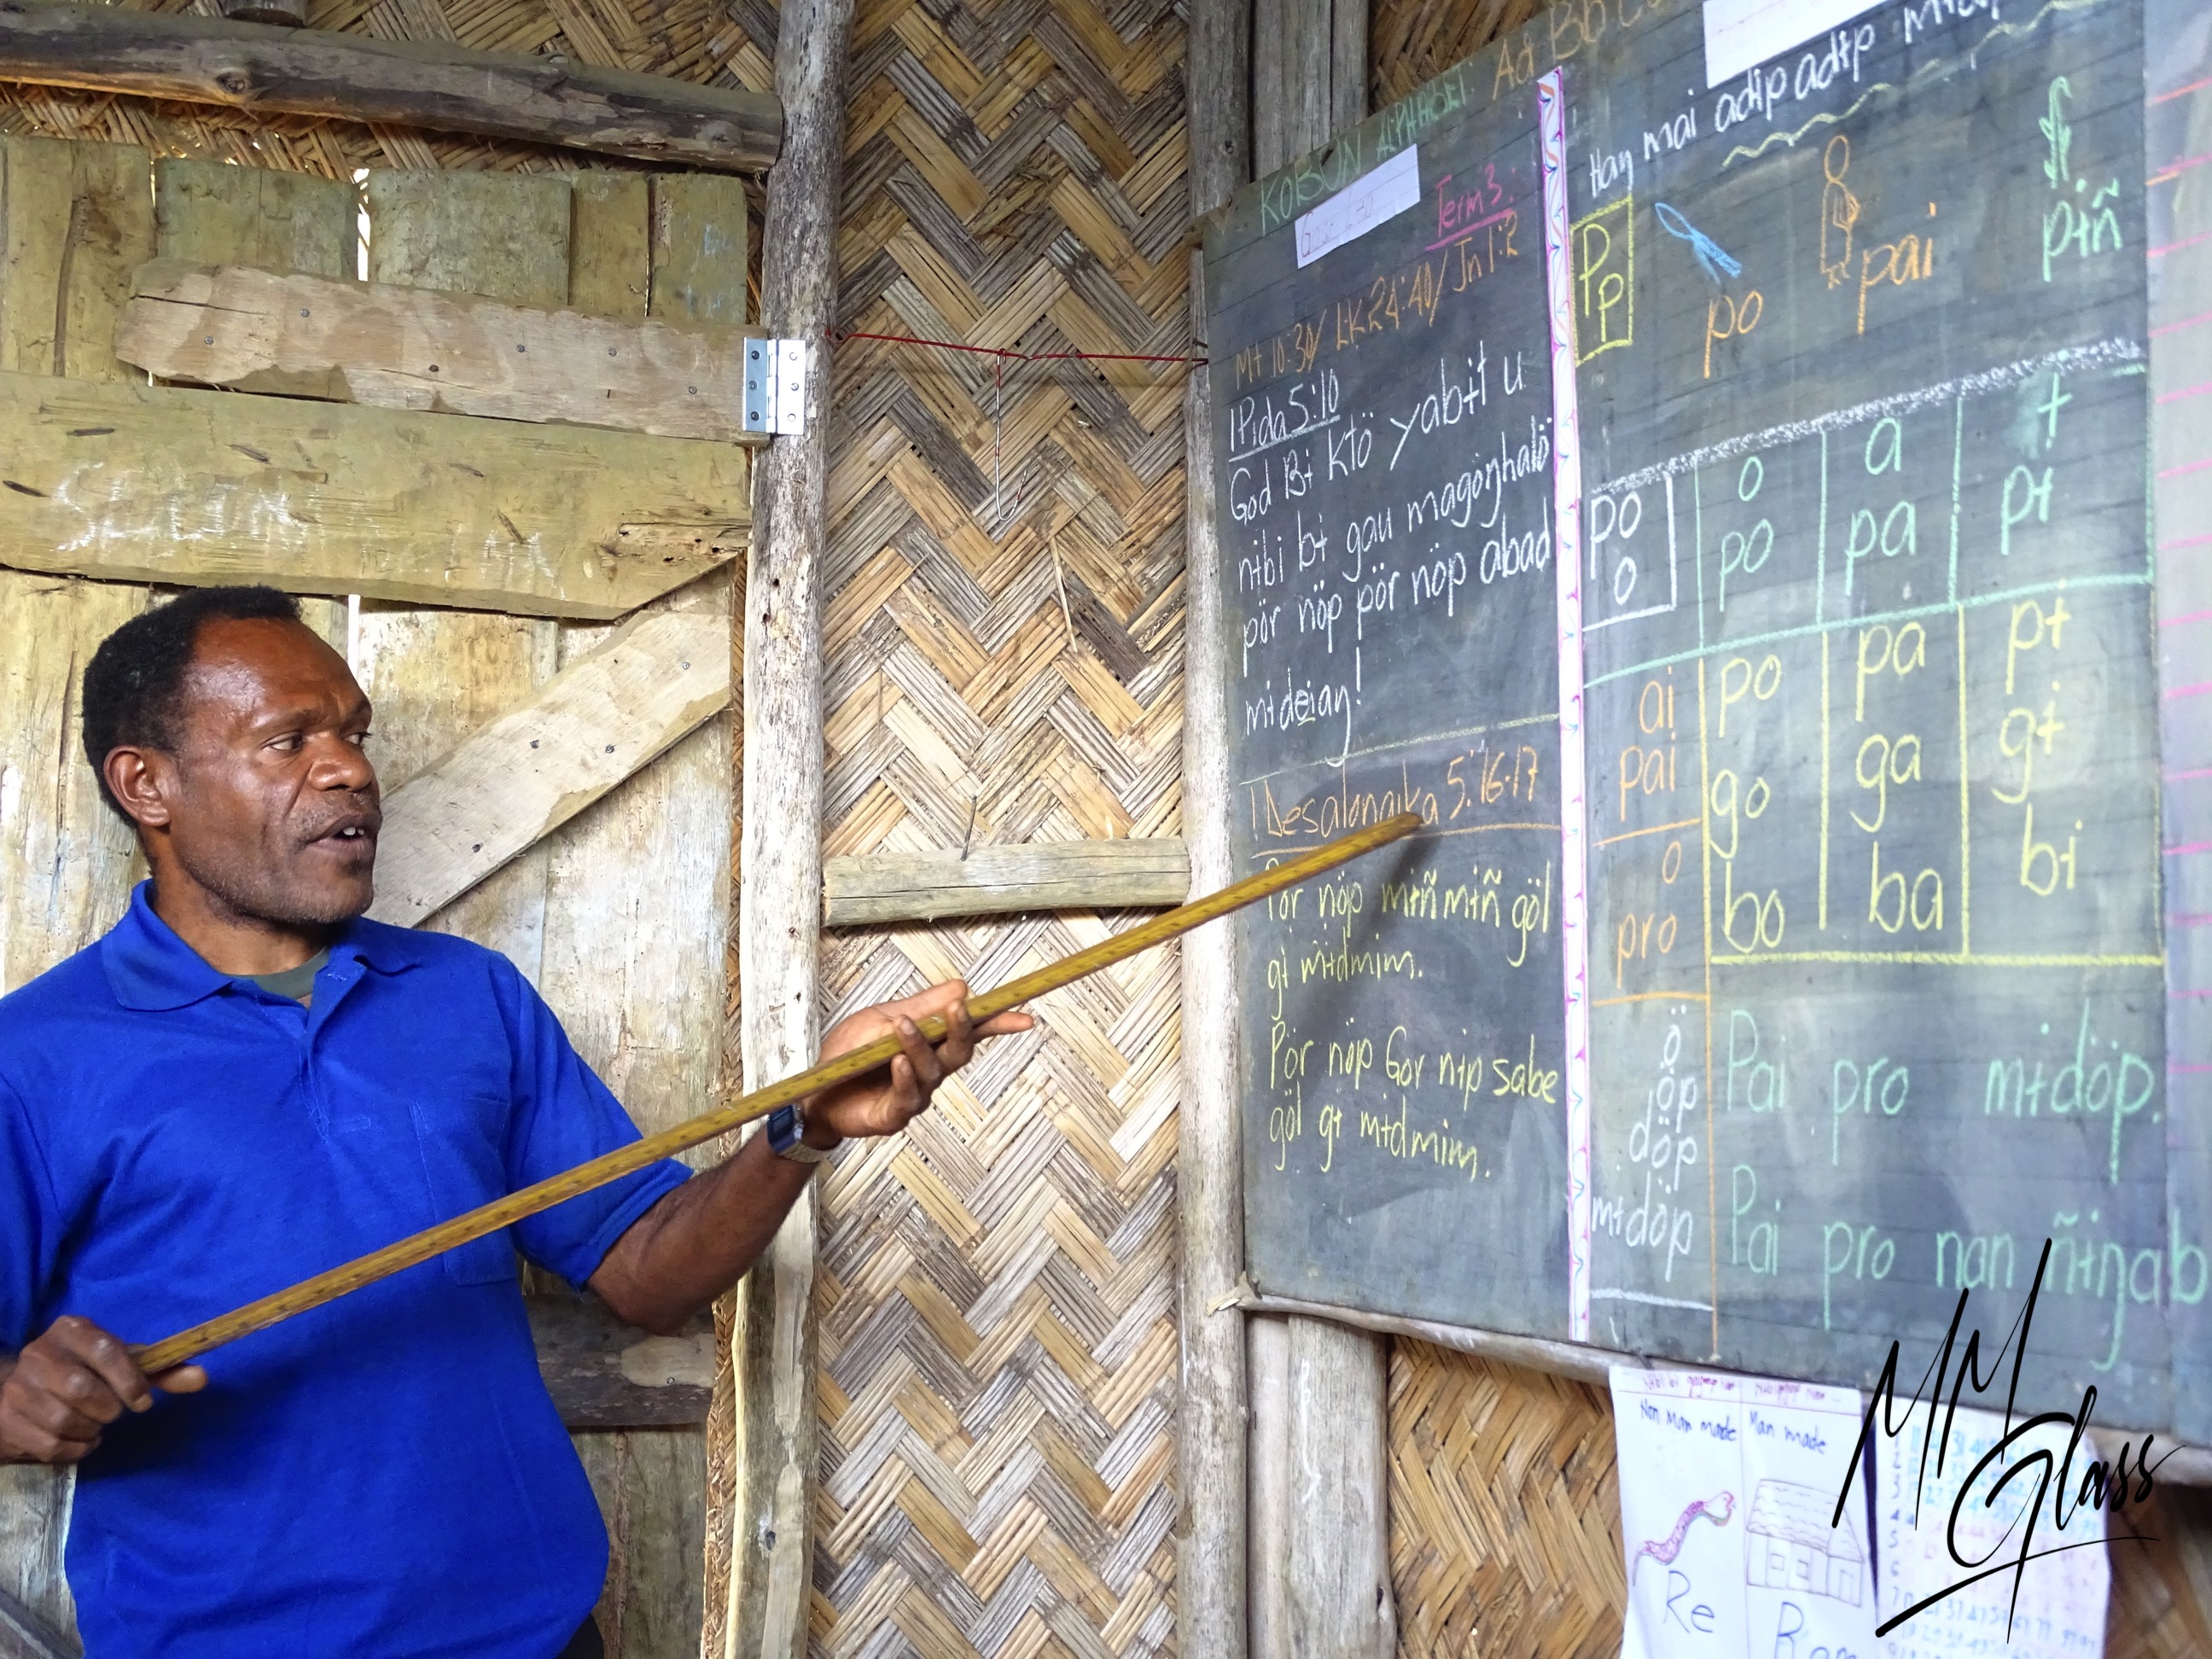 KOBON ALPHABET: Aa Bb
Term 3.
Mt 10:30/ LK 24:40/ Jn 1:2
1 Pida 5:10
God Bɨ Ktö yabɨl u
nɨbi bɨ gau magöŋhalö
pör nöp pör nöp abad
mɨdeiaŋ!
1 Desalonaika 5:16-17
Pör nöp mɨñ mɨñ göl
gɨ mɨdmim.
Pör nöp Gor nɨp sabe
göl gɨ mɨdmim.
Haŋ mai adɨp adɨp
Pp
po
pai
pɨñ
o a ɨ
po po pa pɨ
o
ai po pa pɨ
pai go ga gɨ
o bo ba bɨ
pro
ö Pai pro mɨdöp.
öp
döp
mɨdöp Pai pro nan ñɨŋab
Non Man made Man made
Re
MM Glass